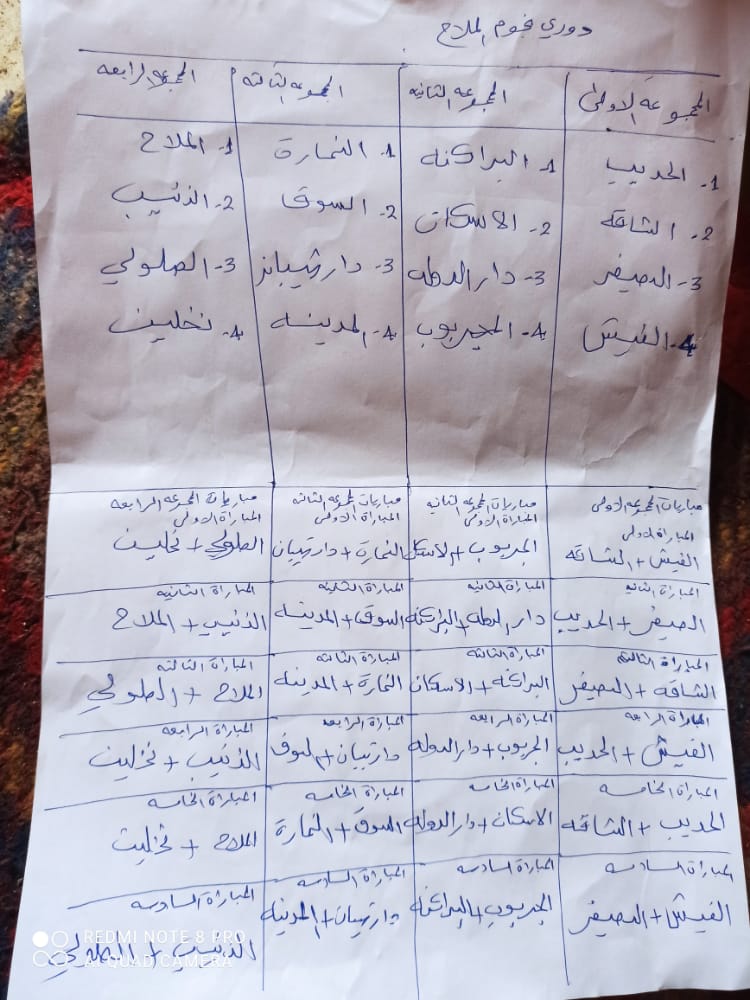 دوري نجوم الملاح
المجموعة الاولى
المجموعه الثانيه
المجموعة الثالثه
المجموعة الرابعه
1- الحديب
2- الشاقه
3- الصيفر
4- الفيش
1- البراكنه
2- الاسكان
3- دار الدوله
4- الجربوب
1- النمارة
2- السوق
3- دار شيبان
4- المدينه
1- الملاح
2- الذنيب
3- الصلولي
4- نخلين
مباريات المجموعه الاولى
المباراة الاولى
الفيش + الشاقه
المباراة الثانيه
الصيفر + الحديب
المباراة الثالثة
الشاقه + الصيفر
المباراة الرابعه
الفيش + الحديب
المباراة الخامسه
الحديب + الشاقه
المباراة السادسه
الفيش + الصيفر
مباريات المجموعه الثانيه
المباراة الاولى
الجربوب + الاسكان
المباراة الثانيه
دار الدوله + البراكنه
المباراة الثالثه
البراكنه + الاسكان
المباراة الرابعه
الجربوب + دار الدوله
المباراة الخامسه
الاسكان + دار الدوله
المباراة السادسه
الجربوب + البراكنه
مباريات المجموعه الثالثه
المباراة الاولى
النمارة + دار شيبان
المباراة الثانيه
السوق + المدينه
المباراة الثالثه
النمارة + المدينه
المباراة الرابعه
دار شيبان + السوق
المباراة الخامسه
السوق + النمارة
المباراة السادسه
دار شيبان + المدينه
مباريات المجموعه الرابعه
المباراة الاولى
الصلولي + نخلين
المباراة الثانيه
الذنيب + الملاح
المباراة الثالثه
الملاح + الصلولي
المباراة الرابعه
الذنيب + نخلين
المباراة الخامسه
الملاح + نخلين
المباراة السادسه
الذنيب + الصلولي
REDMI NOTE 8 PRO
AI QUAD CAMERA